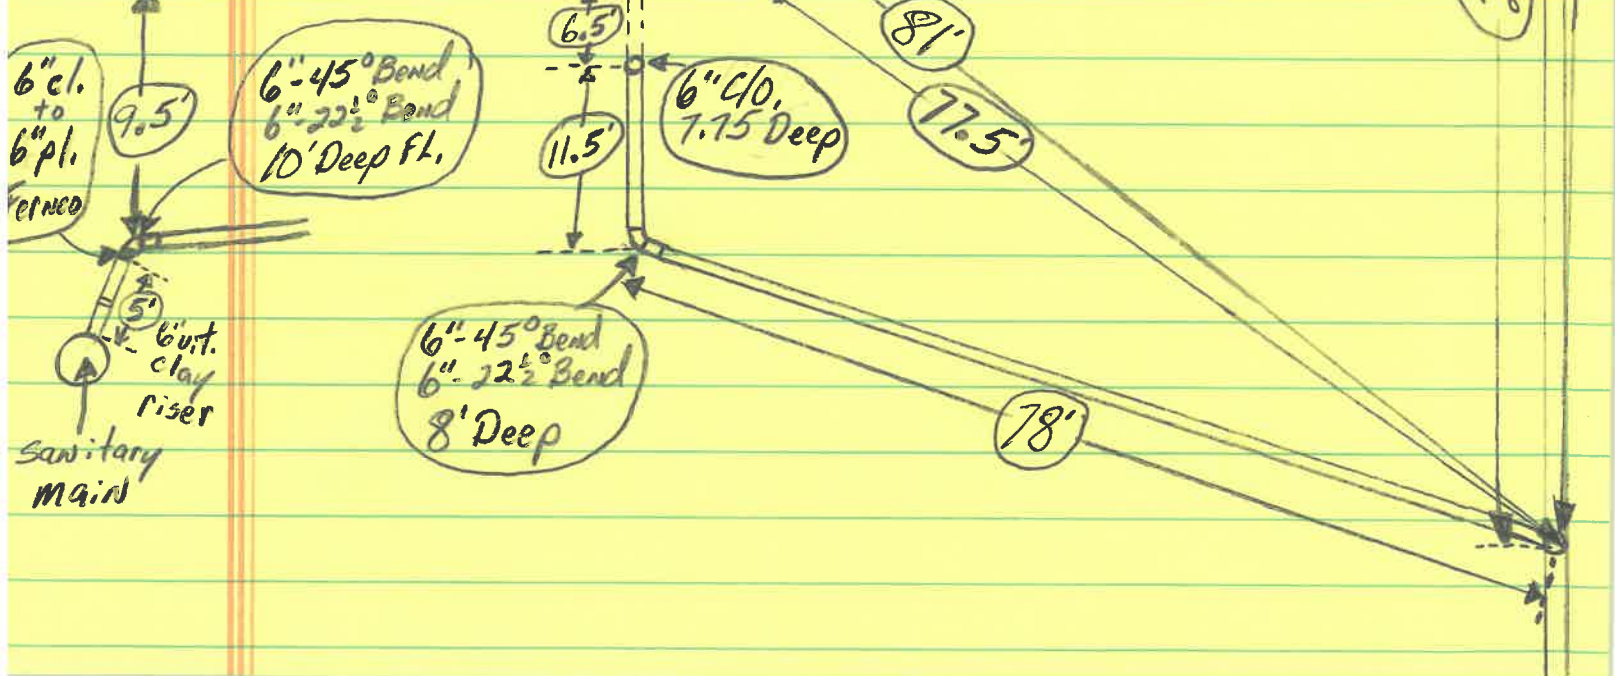 6" cl.
to
6" pl.
Fernco
9.5'
6"-45° Bend
6"-22½° Bend
10' Deep FL.
6.5'
11.5'
6" C/O.
7.75 Deep
81'
77.5'
5'
6" vit.
clay
riser
Sanitary
main
6"-45° Bend
6"-22½° Bend
8' Deep
78'